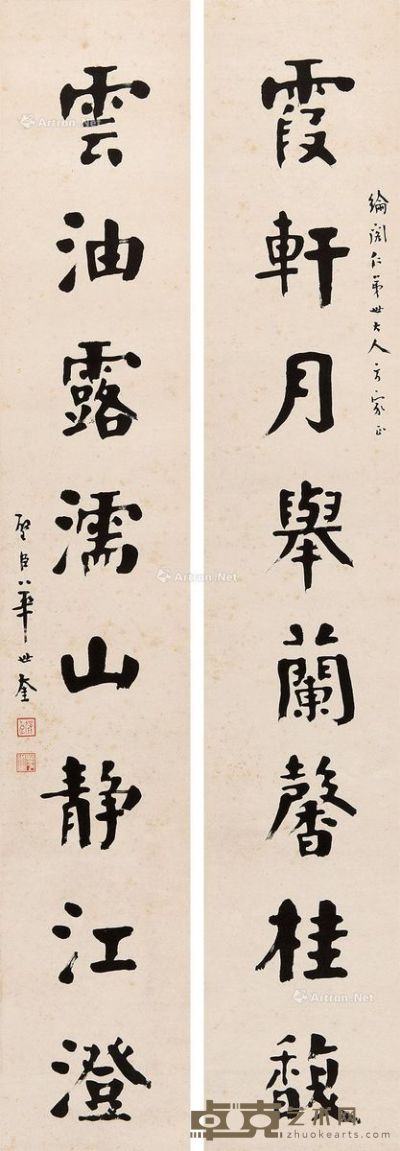 綸閣仁弟世大人方家正
霞軒月舉蘭馨桂馥
雲油露濡山靜江澄
壁臣華世奎
Artron.Net
Artron.Net
Artron.Net
Artron.Net
卓克艺术网
zhuokearts.com